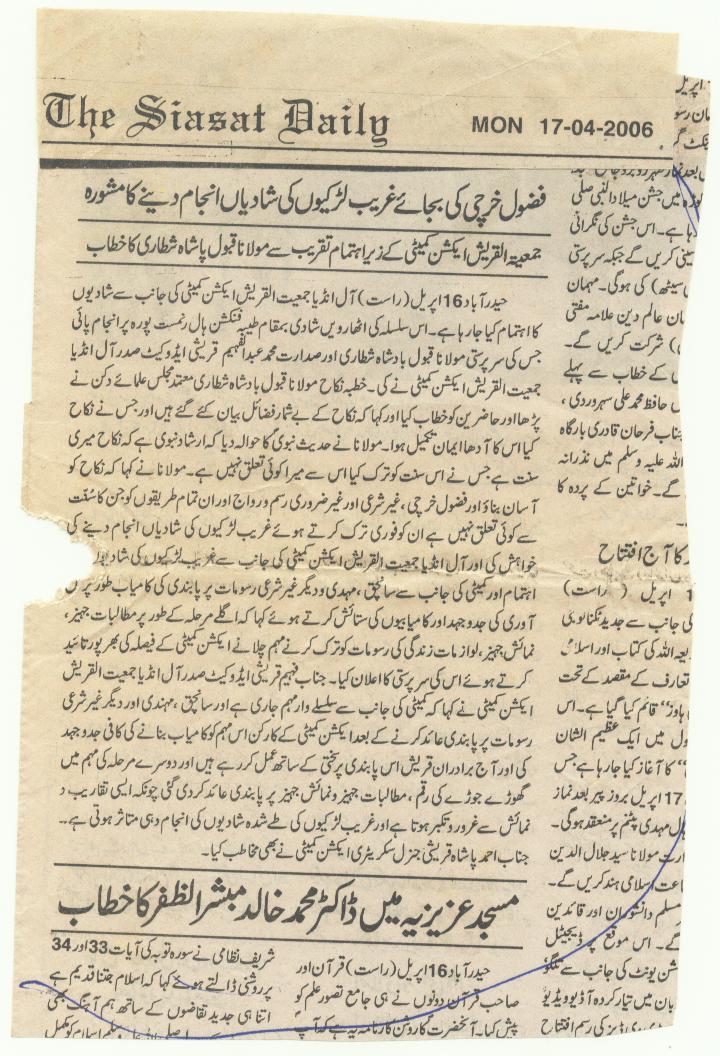 The Siasat Daily
MON 17-04-2006
فضول خرچی کی بجائے غریب لڑکیوں کی شادیاں انجام دینے کا مشورہ
جمعیۃ القریش ایکشن کمیٹی کے زیر اہتمام تقریب سے مولانا قبول پاشاہ شطاری کا خطاب
حیدرآباد 16 اپریل (راست) آل انڈیا جمعیت القریش ایکشن کمیٹی کی جانب سے شادیوں
کا اہتمام کیا جارہا ہے۔ اس سلسلہ کی اٹھارویں شادی بمقام طیبہ فنکشن ہال رنمست پورہ پر انجام پائی
جس کی سرپرستی مولانا قبول بادشاہ شطاری اور صدارت محمد عبدالفہیم قریشی ایڈوکیٹ صدر آل انڈیا
جمعیت القریش ایکشن کمیٹی نے کی۔ خطبہ نکاح مولانا قبول بادشاہ شطاری معتمد مجلس علمائے دکن نے
پڑھا اور حاضرین کو خطاب کیا اور کہا کہ نکاح کے بے شمار فضائل بیان کئے گئے ہیں اور جس نے نکاح
کیا اس کا آدھا ایمان تکمیل ہوا۔ مولانا نے حدیث نبوی کا حوالہ دیا کہ ارشاد نبوی ہے کہ نکاح میری
سنت ہے جس نے اس سنت کو ترک کیا اس سے میرا کوئی تعلق نہیں ہے۔ مولانا نے کہا کہ نکاح کو
آسان بناؤ اور فضول خرچی، غیر شرعی اور غیر ضروری رسم و رواج اور ان تمام طریقوں کو جن کا سنت
سے کوئی تعلق نہیں ہے ان کو فوری ترک کرتے ہوئے غریب لڑکیوں کی شادیاں انجام دینے کی
خواہش کی اور آل انڈیا جمعیت القریش ایکشن کمیٹی کی جانب سے غریب لڑکیوں کی
اہتمام اور کمیٹی کی جانب سے سانچق، مہندی و دیگر غیر شرعی رسومات پر پابندی کی کامیاب طور پر
آوری کی جدوجہد اور کامیابیوں کی ستائش کرتے ہوئے کہا کہ اگلے مرحلہ کے طور پر مطالبات جہیز،
نمائش جہیز، لوازمات زندگی کی رسومات کو ترک کرنے مہم چلانے ایکشن کمیٹی کے فیصلہ کی بھرپور تائید
کرتے ہوئے اس کی سرپرستی کا اعلان کیا۔ جناب فہیم قریشی ایڈوکیٹ صدر آل انڈیا جمعیت القریش
ایکشن کمیٹی نے کہا کہ کمیٹی کی جانب سے سلسلے وار مہم جاری ہے اور سانچق، مہندی اور دیگر غیر شرعی
رسومات پر پابندی عائد کرنے کے بعد ایکشن کمیٹی کے کارکن اس مہم کو کامیاب بنانے کی کافی جدوجہد
کی اور آج برادران قریش اس پابندی پر سختی کے ساتھ عمل کررہے ہیں اور دوسرے مرحلہ کی مہم میں
گھوڑے جوڑے کی رقم، مطالبات جہیز و نمائش جہیز پر پابندی عائد کردی گئی چونکہ ایسی تقاریب و
نمائش سے غرور و تکبر ہوتا ہے اور غریب لڑکیوں کی طے شدہ شادیوں کی انجام دہی متاثر ہوتی ہے۔
جناب احمد پاشاہ قریشی جنرل سکریٹری ایکشن کمیٹی نے بھی مخاطب کیا۔
مسجد عزیزیہ میں ڈاکٹر محمد خالد مبشر الظفر کا خطاب
حیدرآباد 16 اپریل (راست) قرآن اور
صاحب قرآن دونوں نے ہی جامع تصور علم کو
پیش کیا۔ آنحضرت کا روشن کارنامہ یہ ہے کہ آپ
شریف نظامی نے سورہ توبہ کی آیات 33 اور 34
پر روشنی ڈالتے ہوئے کہا کہ اسلام جتنا قدیم ہے
اتنا ہی جدید تقاضوں کے ساتھ ہم آہنگ بھی
اپریل
میں جشن میلاد النبی صلی
رہا ہے۔ اس جشن کی نگرانی
کریں گے جبکہ سرپرستی
سیٹھ) کی ہوگی۔ مہمان
عالم دین علامہ مفتی
) شرکت کریں گے۔
کے خطاب سے پہلے
حافظ محمد علی سہروردی،
جناب فرحان قادری بارگاہ
اللہ علیہ وسلم میں نذرانہ
گے۔ خواتین کے پردہ کا
کا آج افتتاح
اپریل (راست)
کی جانب سے جدید ٹکنالوجی
اللہ کی کتاب اور
تعارف کے مقصد کے تحت
ہاوز“ قائم کیا گیا ہے۔ اس
میں ایک عظیم الشان
“ کا آغاز کیا جارہا ہے جس
17 اپریل بروز پیر بعد نماز
مہدی پٹنم پر منعقد ہوگی۔
مولانا سید جلال الدین
اسلامی ہند کریں گے۔
مسلم دانشوران اور قائدین
گے۔ اس موقع پر ڈیجیٹل
یونٹ کی جانب سے تلگو
میں تیار کردہ آڈیو ویڈیو
کی رسم افتتاح